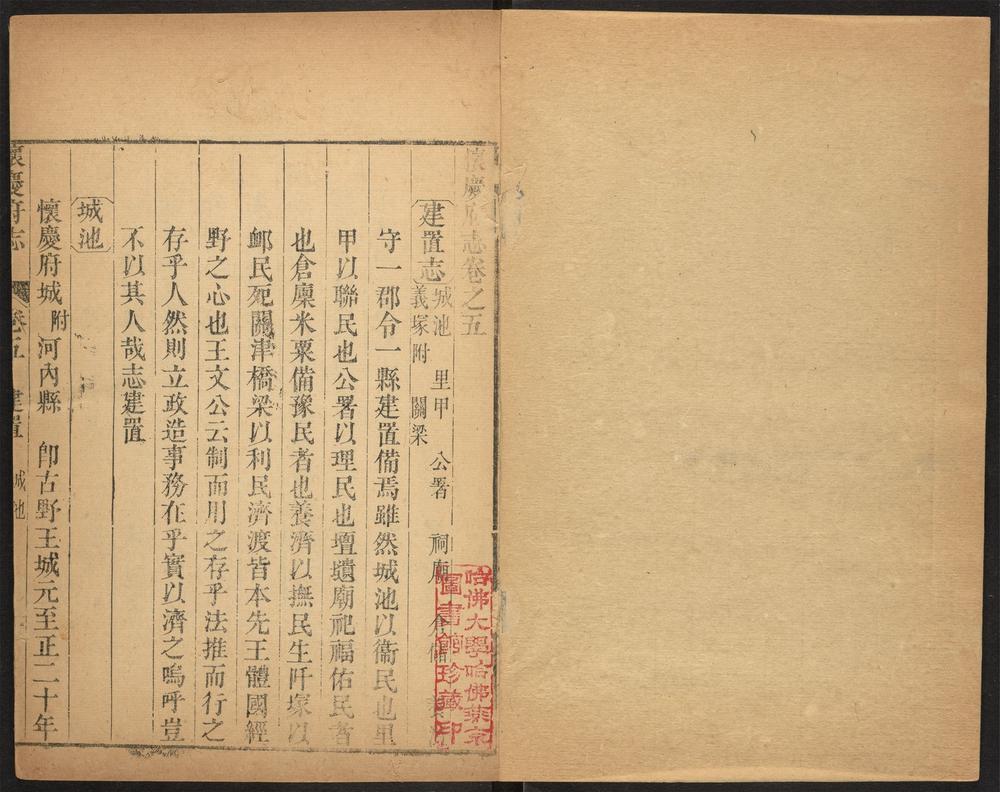 懷慶府志卷之五
建置志 城池 里甲 公署 祠廟 倉儲
義塚附 關梁
守一郡令一縣建置備焉雖然城池以衞民也里
甲以聯民也公署以理民也壇壝廟祀福佑民者
也倉廩米粟備豫民者也養濟以撫民生阡塚以
郵民死關津橋梁以利民濟渡皆本先王體國經
野之心也王文公云制而用之存乎法推而行之
存乎人然則立政造事務在乎實以濟之嗚呼豈
不以其人哉志建置
城池
懷慶府城附河內縣 卽古野王城元至正二十年
懷慶府志 卷五 建置 城池
哈佛大學哈佛燕京
圖書館珍藏印